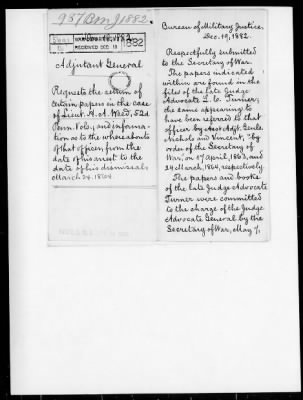 957 B.M.J. 1882.
RECEIVED DEC 19 1882
Adjutant General
Requests the return of
certain papers in the case
of Lieut. A. A. 52d
Penn. Vols., and informa-
tion as to the whereabouts
of that officer, from the
date of his arrest to the
date of his dismissal,
March 24. 1864.
Bureau of Military Justice,
Dec. 19, 1882.
Respectfully submitted
to the Secretary of War.
The papers indicated
within are found in the
files of the late Judge
Advocate L. C. Turner;
the same appearing to
have been referred to that
officer by Asst. Adjt. Genls.
Nichols and Vincent, "by
order of the Secretary of
War," on 1st April, 1863, and
March, 1864, respectively.
The papers and books
of the late Judge Advocate
Turner were committed
to the charge of the Judge
Advocate General by the
Secretary of War, May